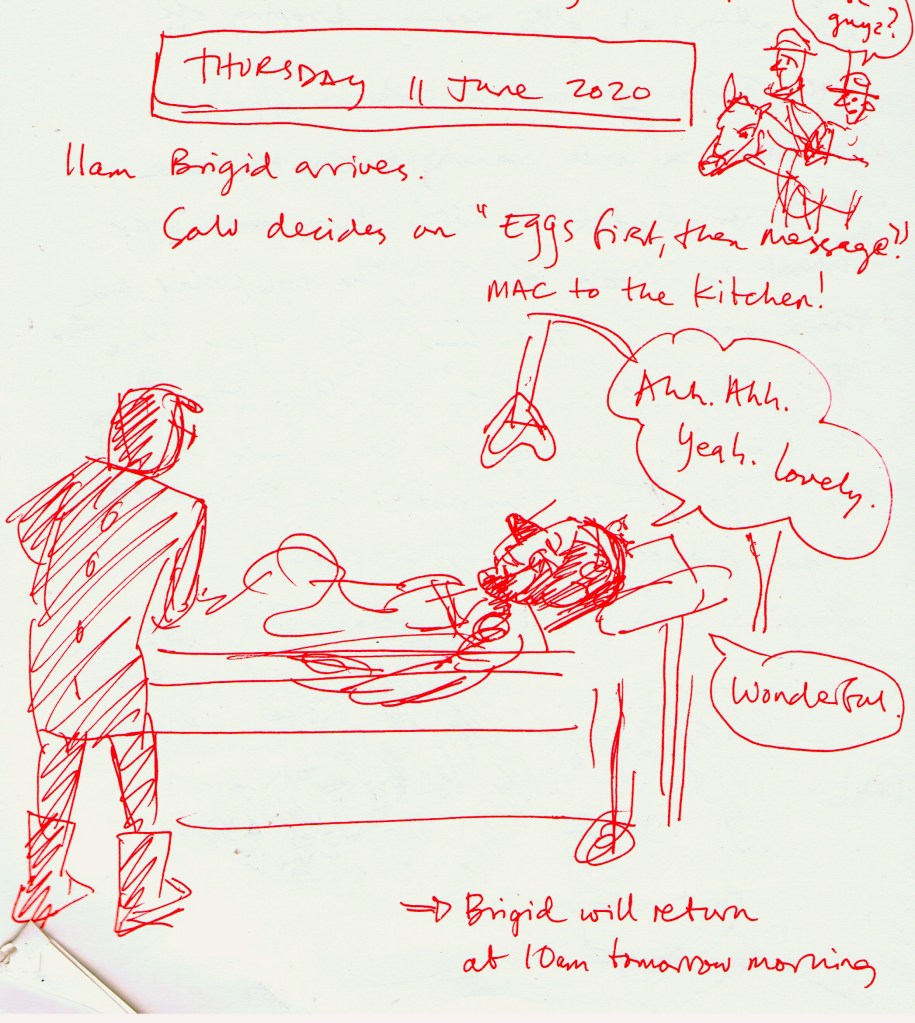 guys?
THURSDAY 11 June 2020
11am Brigid arrives.
Salv decides on "Eggs first, then massage!"
MAC to the kitchen!
Ahh. Ahh.
Yeah. Lovely.
Wonderful.
⇒ Brigid will return
at 10am tomorrow morning